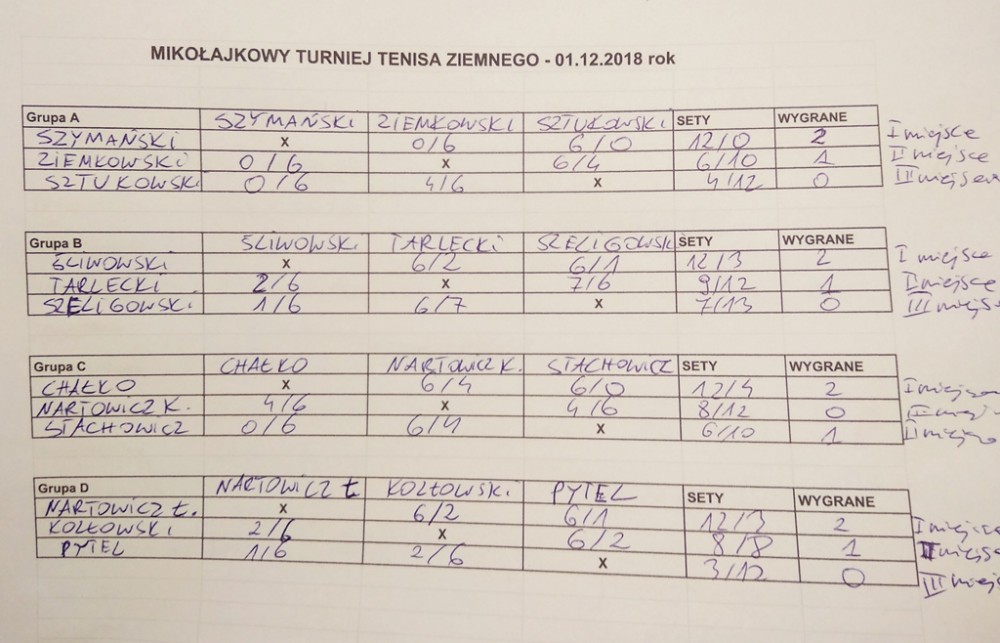 MIKOŁAJKOWY TURNIEJ TENISA ZIEMNEGO - 01.12.2018 rok
Grupa A SZYMAŃSKI ZIEMKOWSKI SZTUKOWSKI SETY WYGRANE
SZYMAŃSKI x 0/6 6/0 12/0 2 I miejsce
ZIEMKOWSKI 0/6 x 6/4 6/10 1 II miejsce
SZTUKOWSKI 0/6 4/6 x 4/12 0 III miejsce
Grupa B ŚLIWOWSKI TARLECKI SZELIGOWSKI SETY WYGRANE
ŚLIWOWSKI x 6/2 6/1 12/3 2 I miejsce
TARLECKI 2/6 x 7/6 9/12 1 II miejsce
SZELIGOWSKI 1/6 6/7 x 7/13 0 III miejs
Grupa C CHAŁKO NARTOWICZ K. STACHOWICZ SETY WYGRANE
CHAŁKO x 6/4 6/0 12/4 2 I miejsce
NARTOWICZ K. 4/6 x 4/6 8/12 0
STACHOWICZ 0/6 6/4 x 6/10 1 II miejsce
Grupa D NARTOWICZ Ł KOZŁOWSKI PYTEL SETY WYGRANE
NARTOWICZ Ł. x 6/2 6/1 12/3 2 I miejsce
KOZŁOWSKI 2/6 x 6/2 8/8 1 II miejsc
PYTEL 1/6 2/6 x 3/12 0 III miejs